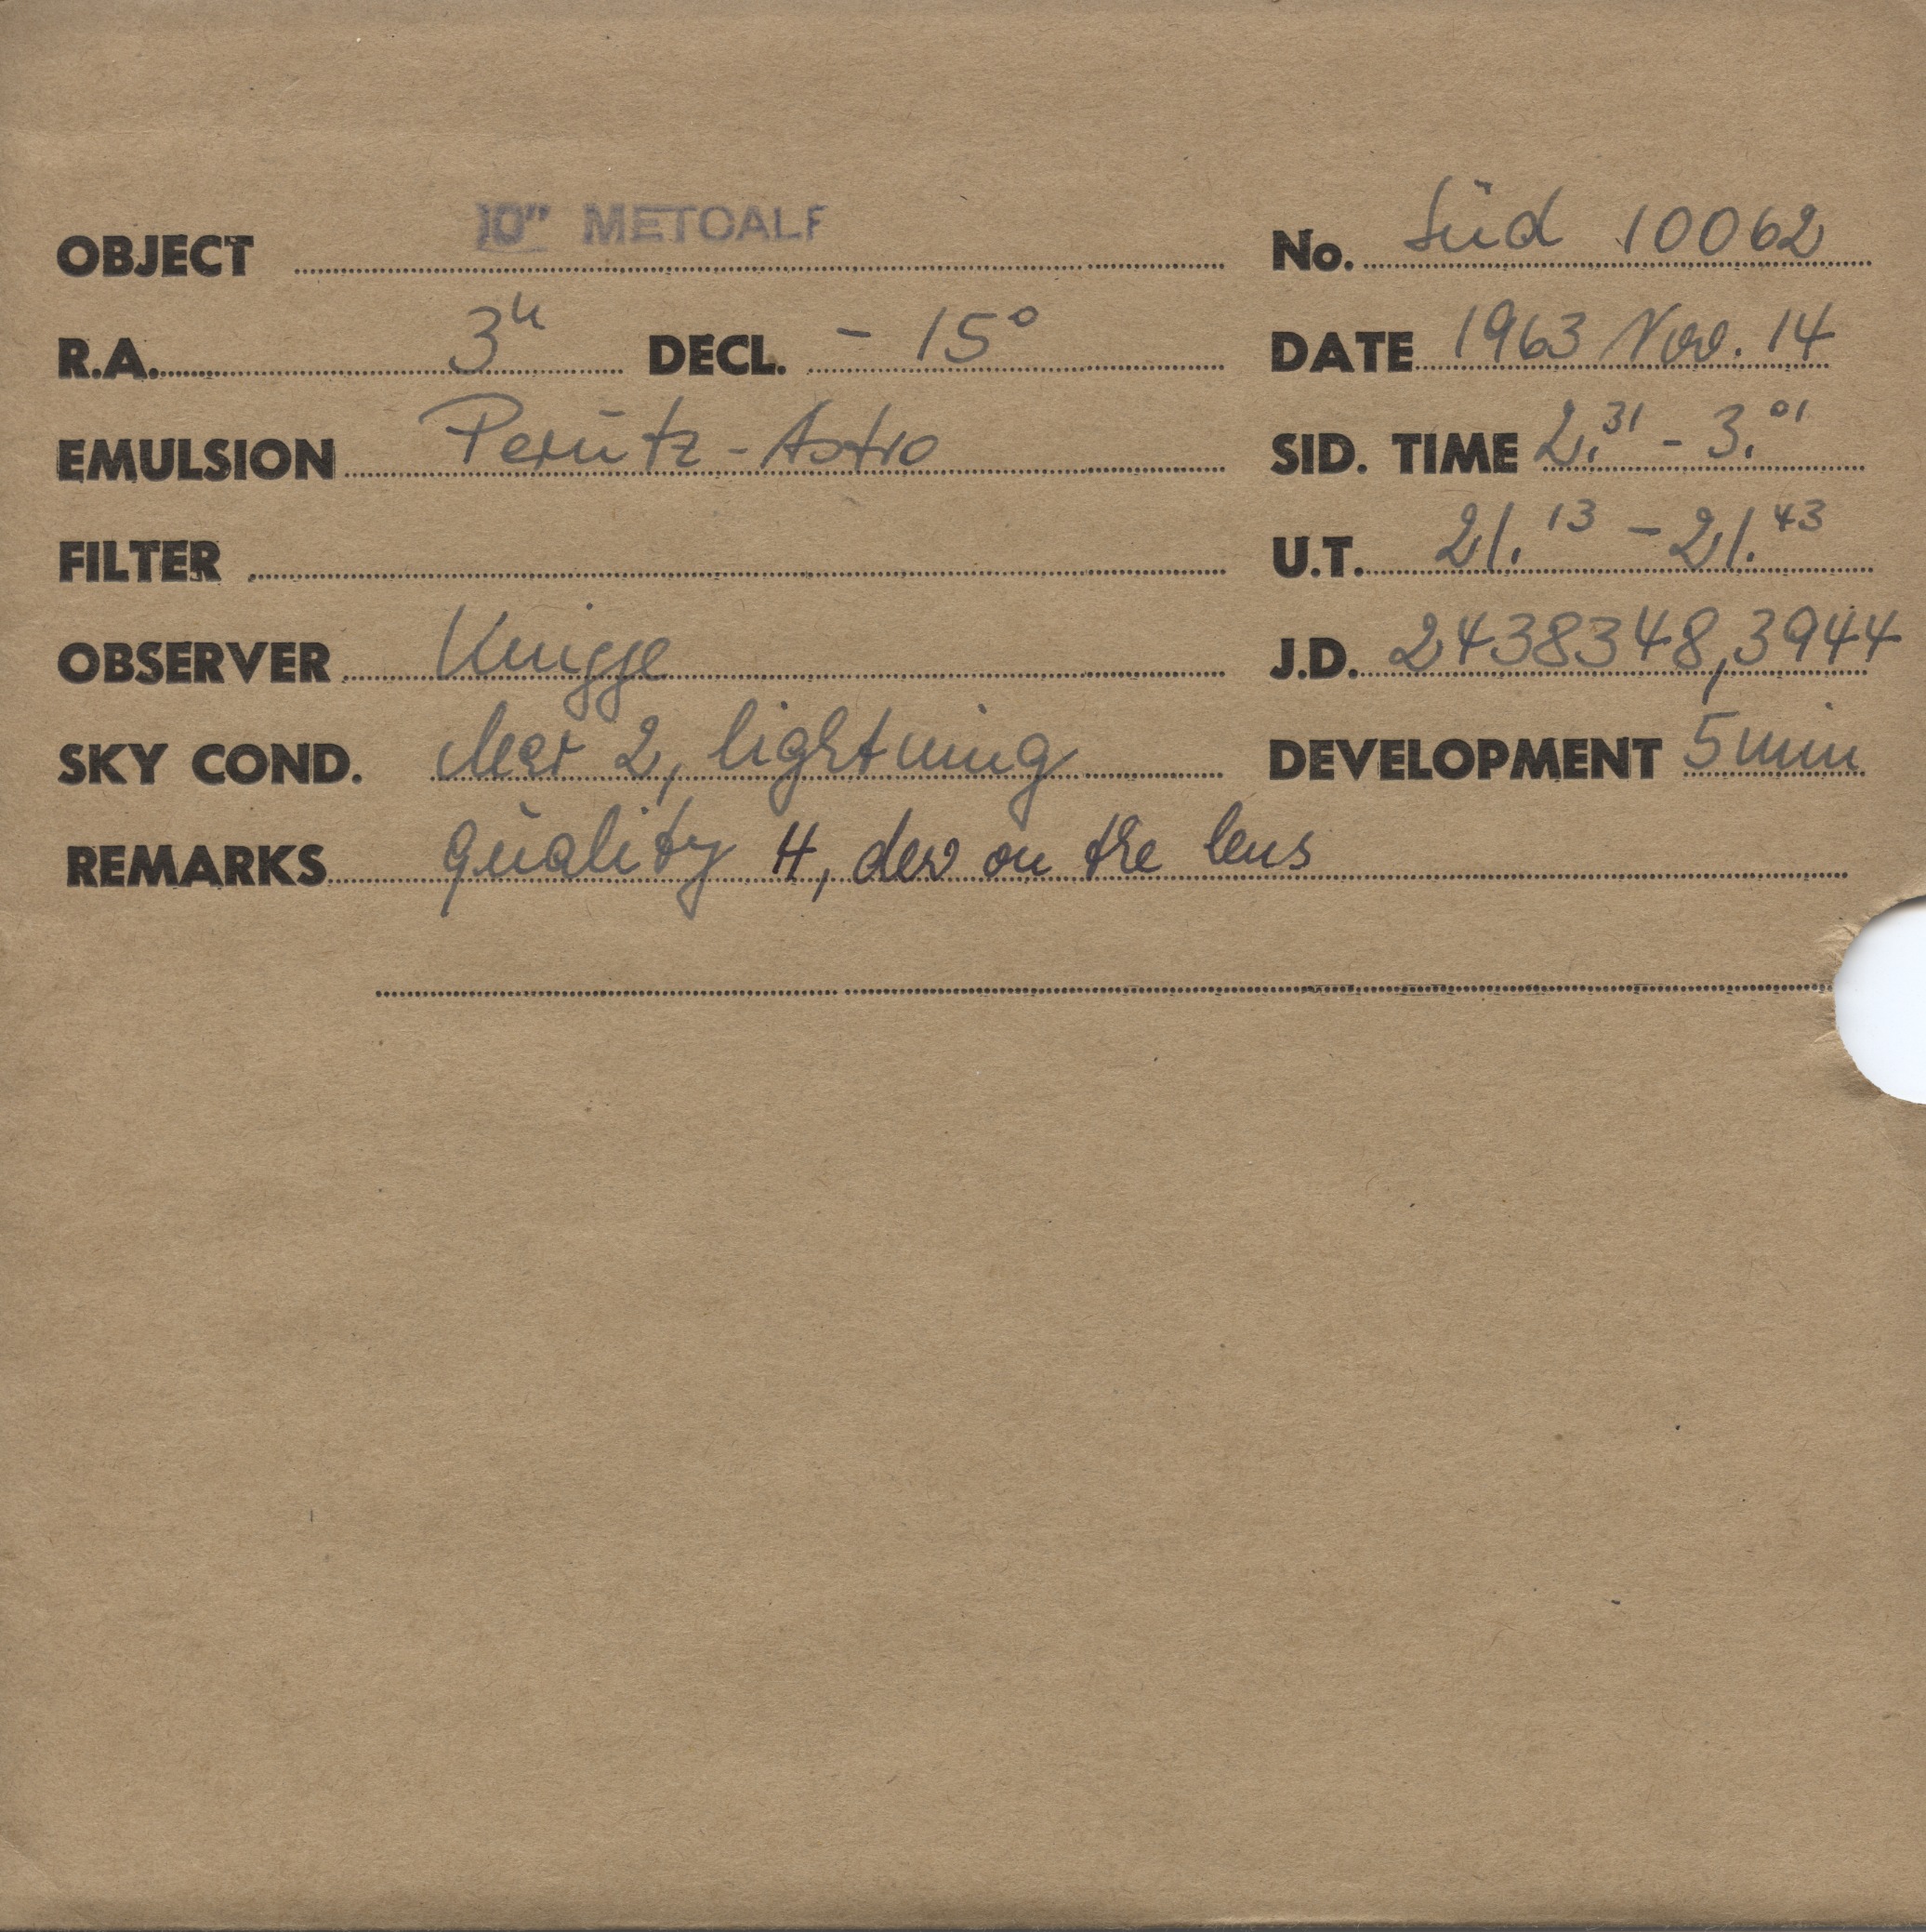 OBJECT 10" METCALF No. Süd 10062
R.A. 3h DECL. - 15° DATE 1963 Nov. 14
EMULSION Perutz-Astro SID. TIME 2.31 - 3.01
FILTER U.T. 21.13 - 21.43
OBSERVER Knigge J.D. 2438348,3944
SKY COND. clear 2, lightning DEVELOPMENT 5 min
REMARKS quality 4, dew on the lens